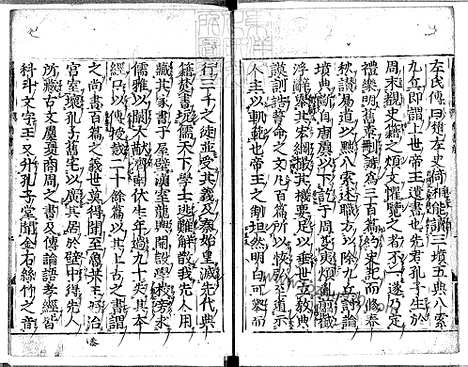 左氏傳曰楚左史倚相能讀三墳五典八索
九丘即謂上世帝王遺書也先君孔子生於
周末覩史籍之煩文懼覽之者不一遂乃定
禮樂明舊章刪詩為三百篇約史記而修春
秋讚易道以黜八索述職方以除九丘討論
墳典斷自唐虞以下訖于周芟夷煩亂翦截
浮辭舉其宏綱撮其機要足以垂世立教典
謨訓誥誓命之文凡百篇所以恢弘至道示
人主以軌範也帝王之制坦然明白可舉而
行三千之徒並受其義及秦始皇滅先代典
籍焚書坑儒天下學士逃難解散我先人用
藏其家書于屋壁漢室龍興開設學校旁求
儒雅以闡大猷濟南伏生年過九十失其本
經口以傳授裁二十餘篇以其上古之書謂
之尚書百篇之義世莫得聞至魯共王好治
宮室壞孔子舊宅以廣其居於壁中得先人
所藏古文虞夏商周之書及傳論語孝經皆
科斗文字王又升孔子堂聞金石絲竹之音